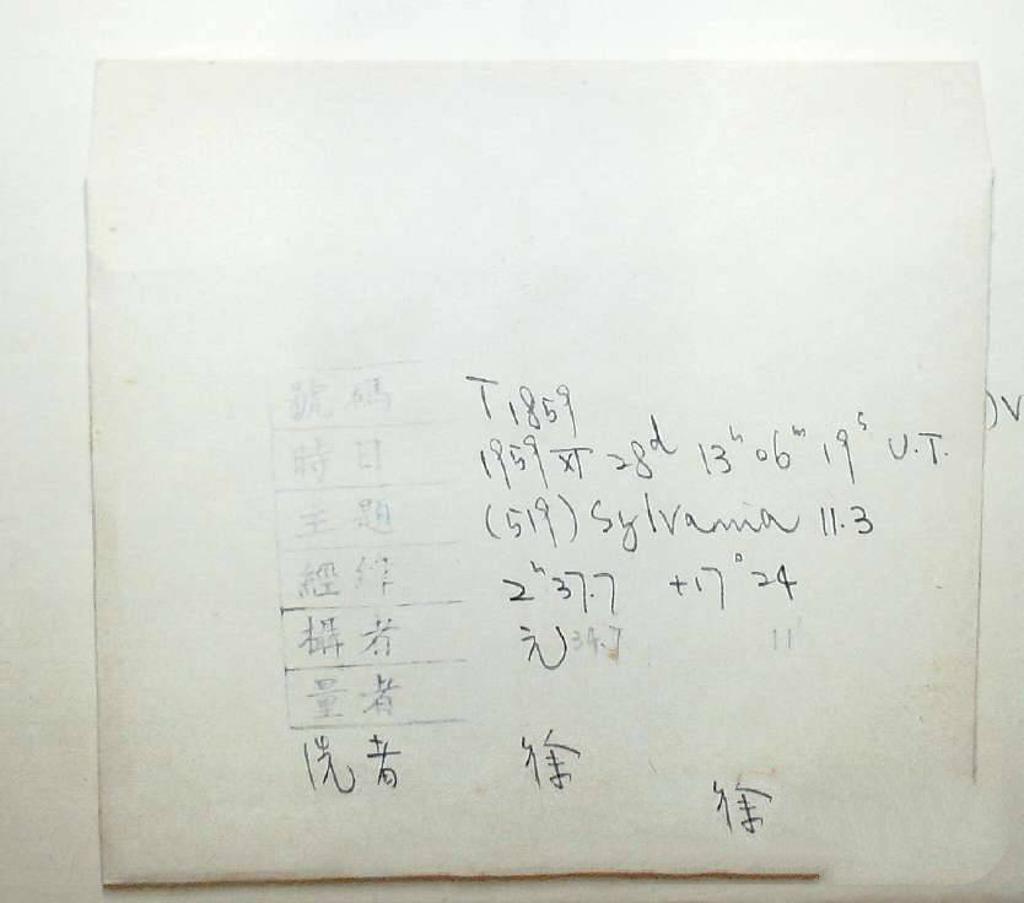 號碼 T1859
時日 1959 XI 28d 13h 06m 19s U.T.
主題 (519) Sylvania 11.3
經緯 2h37.7 +17°24
攝者 元 34.7 11'
量者
洗者 徐
徐